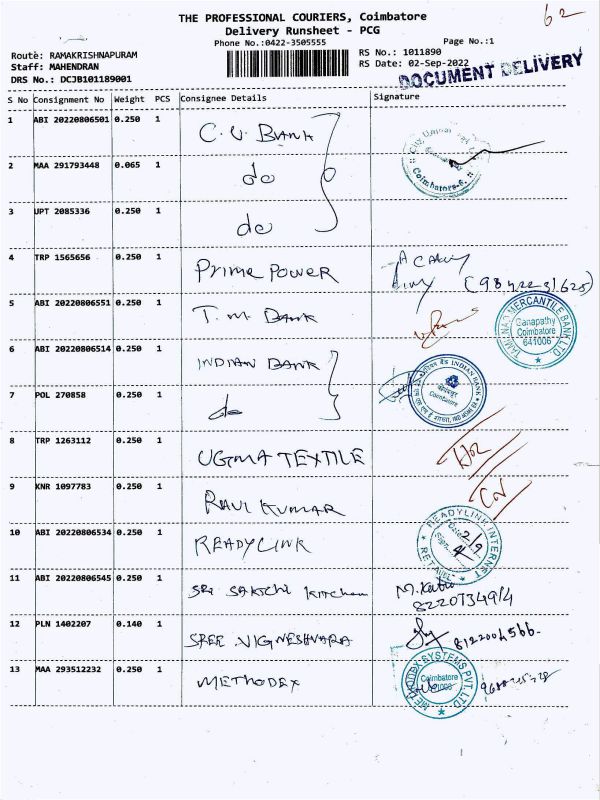 THE PROFESSIONAL COURIERS, Coimbatore
62
Delivery Runsheet - PCG
Phone No.:0422-3505555
Page No.:1
Route: RAMAKRISHNAPURAM
RS No.: 1011890
Staff: MAHENDRAN
RS Date: 02-Sep-2022
DRS No.: DCJB101189001
DOCUMENT DELIVERY
S No Consignment No Weight PCS Consignee Details Signature
1 ABI 20220806501 0.250 1 C.U. BANK
Coimbatore-6.
2 MAA 291793448 0.065 1 do
3 UPT 2085336 0.250 1 do
4 TRP 1565656 0.250 1 Prime POWER
5 ABI 20220806551 0.250 1 T.M. BANK
TAMILNAD MERCANTILE BANK LTD
Ganapathy
Coimbatore
641006
6 ABI 20220806514 0.250 1 INDIAN BANK
INDIAN BANK
Coimbatore
7 POL 270858 0.250 1 do
8 TRP 1263112 0.250 1 UGMA TEXTILE
9 KNR 1097783 0.250 1 RAVI KUMAR
10 ABI 20220806534 0.250 1 READYLINK
READYLINK INTERNET
2/9
11 ABI 20220806545 0.250 1 SRI SAKTHI Kitchen
12 PLN 1402207 0.140 1 SREE VIGNESHVARA
8122004566.
13 MAA 293512232 0.250 1 METHODEX
SYSTEMS PVT. LTD
Coimbatore